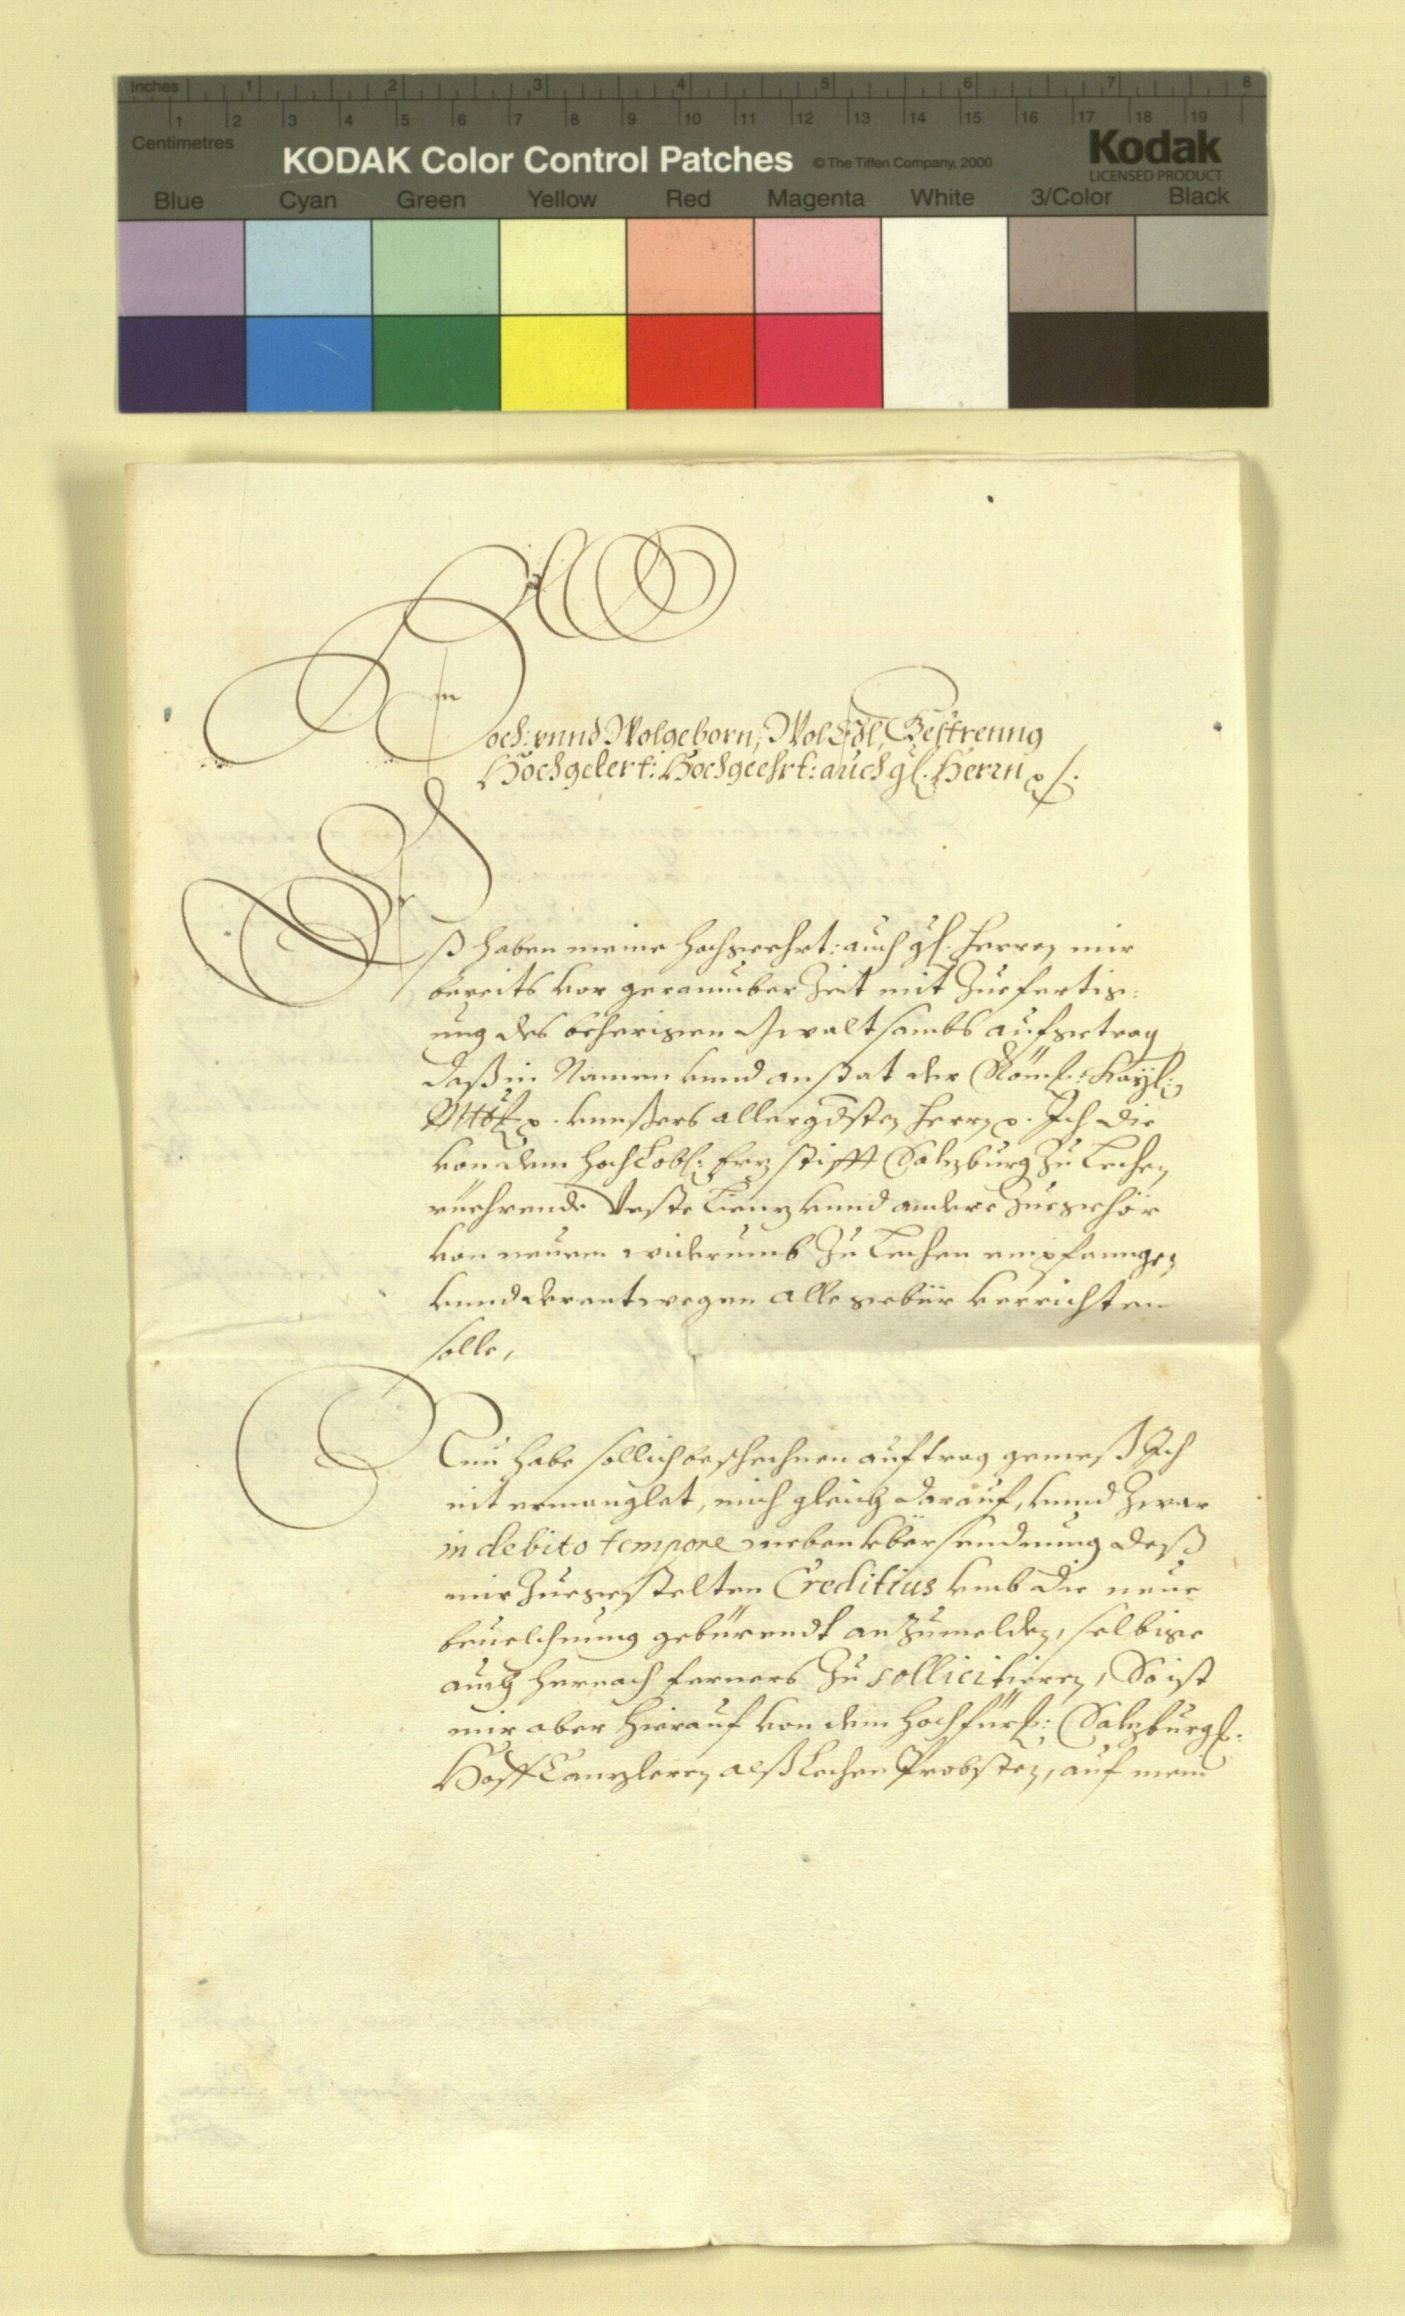 Inches 1 2 3 4 5 6 7 8
1 2 3 4 5 6 7 8 9 10 11 12 13 14 15 16 17 18 19
Centimetres
KODAK Color Control Patches © The Tiffen Company, 2000 Kodak
LICENSED PRODUCT
Blue Cyan Green Yellow Red Magenta White 3/Color Black
Hoch: vnnd Wolgeborn, WolEdl, Gestreng
Hochgelert: Hochgeehrt: auch gl. Herrn
Eß haben meine hochgeehrt: auch gl. herren mir
bereits vor geraumber Zeit mit Zuefertig:
ung des behörigen Gwaltsambs aufgetrag
daß in Namen vnnd anstat der Röm: Kayl:
Mtät vnnßers allergdsten herrn Ich die
von dem hochLobl: Erz Stifft Salzburg zu Lechen
rüehrende Veste Lienz vnnd andere Zuegehör
von neuem widerumb Zu Lechen empfanngen
vnnd derentwegen alle gebür verrichten
solle,
Nun habe sollich beschechnen auftrag gemeß Ich
nit ermanglet, mich gleich darauf, vnnd zwar
in debito tempore neben vbersendnung deß
mir Zuegestelten Creditius vmb die neue
beuelchnung gebürendt anzumelden, selbige
auch hernach ferners Zu sollicitieren, So ist
mir aber hierauf von dem hochfürstl: Salzburgl:
Hoff Canzleren alß Lechen Probsten, auf mein